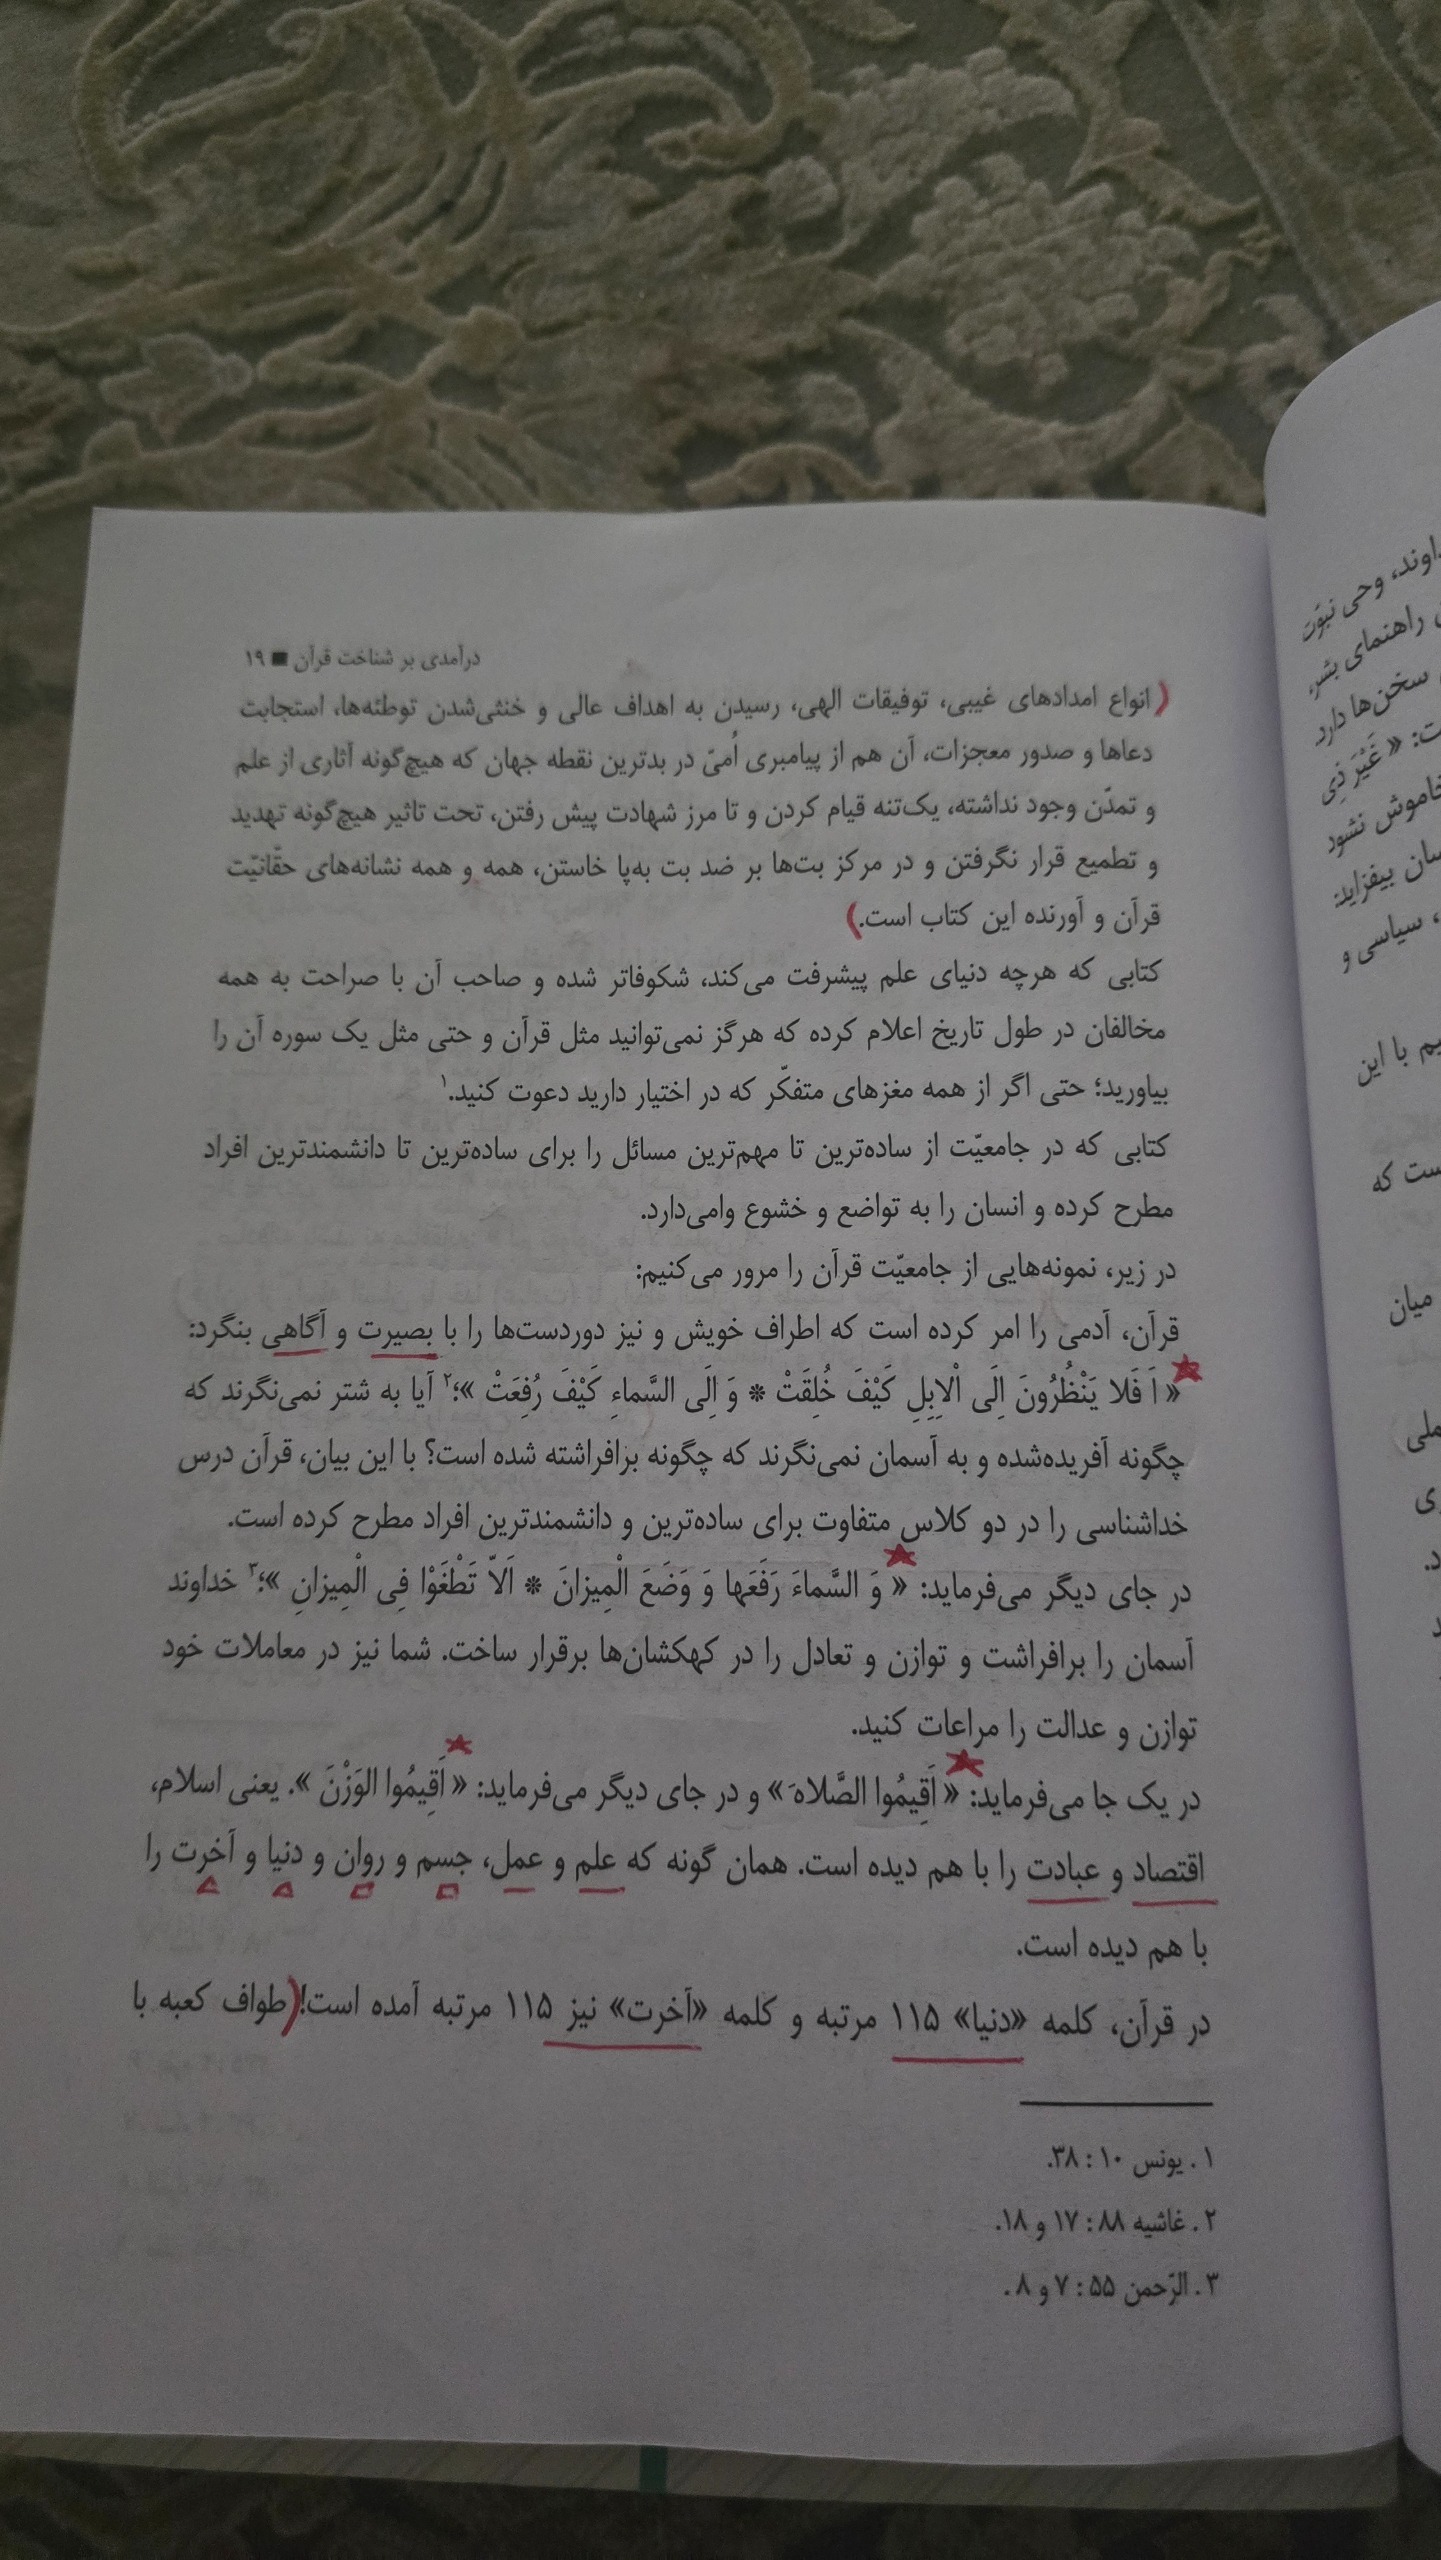 درآمدی بر شناخت قرآن ■ ۱۹
(انواع امدادهای غیبی، توفیقات الهی، رسیدن به اهداف عالی و خنثی‌شدن توطئه‌ها، استجابت
دعاها و صدور معجزات، آن هم از پیامبری اُمیّ در بدترین نقطه جهان که هیچ‌گونه آثاری از علم
و تمدّن وجود نداشته، یک‌تنه قیام کردن و تا مرز شهادت پیش رفتن، تحت تاثیر هیچ‌گونه تهدید
و تطمیع قرار نگرفتن و در مرکز بت‌ها بر ضد بت به‌پا خاستن، همه و همه نشانه‌های حقّانیّت
قرآن و آورنده این کتاب است.)
کتابی که هرچه دنیای علم پیشرفت می‌کند، شکوفاتر شده و صاحب آن با صراحت به همه
مخالفان در طول تاریخ اعلام کرده که هرگز نمی‌توانید مثل قرآن و حتی مثل یک سوره آن را
بیاورید؛ حتی اگر از همه مغزهای متفکّر که در اختیار دارید دعوت کنید.۱
کتابی که در جامعیّت از ساده‌ترین تا مهم‌ترین مسائل را برای ساده‌ترین تا دانشمندترین افراد
مطرح کرده و انسان را به تواضع و خشوع وامی‌دارد.
در زیر، نمونه‌هایی از جامعیّت قرآن را مرور می‌کنیم:
قرآن، آدمی را امر کرده است که اطراف خویش و نیز دوردست‌ها را با بصیرت و آگاهی بنگرد:
« اَ فَلا یَنْظُرُونَ اِلَی اْلاِبِلِ کَیْفَ خُلِقَتْ * وَ اِلَی السَّماءِ کَیْفَ رُفِعَتْ »؛۲ آیا به شتر نمی‌نگرند که
چگونه آفریده‌شده و به آسمان نمی‌نگرند که چگونه برافراشته شده است؟ با این بیان، قرآن درس
خداشناسی را در دو کلاس متفاوت برای ساده‌ترین و دانشمندترین افراد مطرح کرده است.
در جای دیگر می‌فرماید: « وَ السَّماءَ رَفَعَها وَ وَضَعَ الْمِیزانَ * اَلاّ تَطْغَوْا فِی الْمِیزانِ »؛۳ خداوند
آسمان را برافراشت و توازن و تعادل را در کهکشان‌ها برقرار ساخت. شما نیز در معاملات خود
توازن و عدالت را مراعات کنید.
در یک جا می‌فرماید: « اَقِیمُوا الصَّلاهَ » و در جای دیگر می‌فرماید: « اَقِیمُوا الوَزْنَ ». یعنی اسلام،
اقتصاد و عبادت را با هم دیده است. همان گونه که علم و عمل، جسم و روان و دنیا و آخرت را
با هم دیده است.
در قرآن، کلمه «دنیا» ۱۱۵ مرتبه و کلمه «آخرت» نیز ۱۱۵ مرتبه آمده است! (طواف کعبه با
۱ . یونس ۱۰ : ۳۸.
۲ . غاشیه ۸۸ : ۱۷ و ۱۸.
۳ . الرّحمن ۵۵ : ۷ و ۸ .
وحی نبوّت
راهنمای بشر،
سخن‌ها دارد
« غَیْرَ ذِی
خاموش نشود
بیفزاید:
، سیاسی و
با این
که
میان